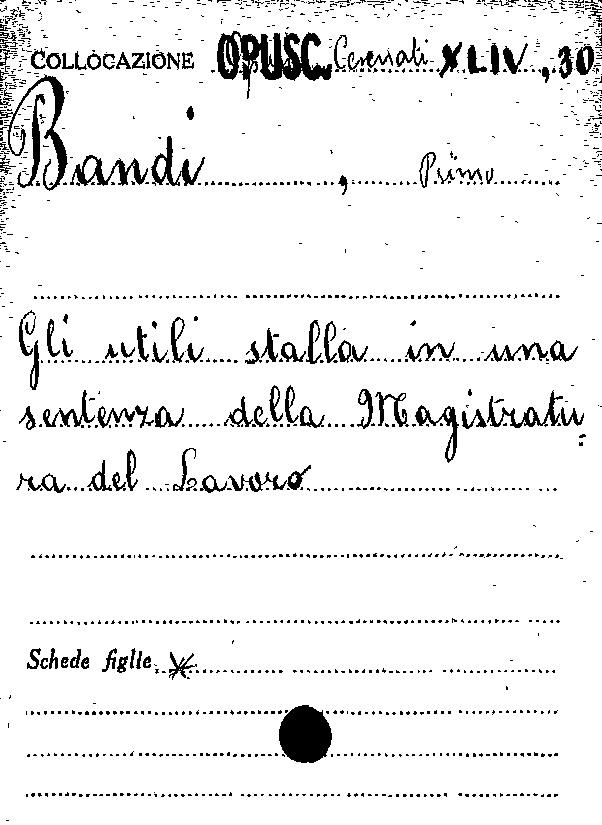 COLLOCAZIONE OPUSC. Cesenati XLIV, 30
Bandi, Primo
Gli utili stalla in una
sentenza della Magistratu=
ra del Lavoro
Schede figlie